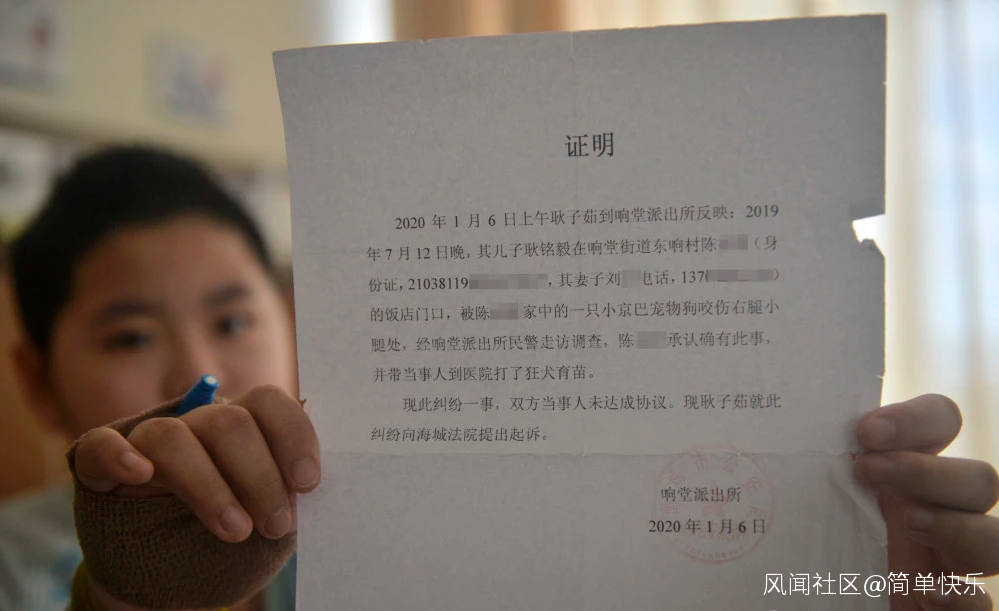 证明
2020 年 1 月 6 日上午耿子茹到响堂派出所反映：2019
年 7 月 12 日晚，其儿子耿铭毅在响堂街道东响村陈（身
份证，21038119，其妻子刘电话，137）
的饭店门口，被陈家中的一只小京巴宠物狗咬伤右腿小
腿处，经响堂派出所民警走访调查，陈承认确有此事，
并带当事人到医院打了狂犬育苗。
现此纠纷一事，双方当事人未达成协议。现耿子茹就此
纠纷向海城法院提出起诉。
响堂派出所
2020 年 1 月 6 日
风闻社区@简单快乐